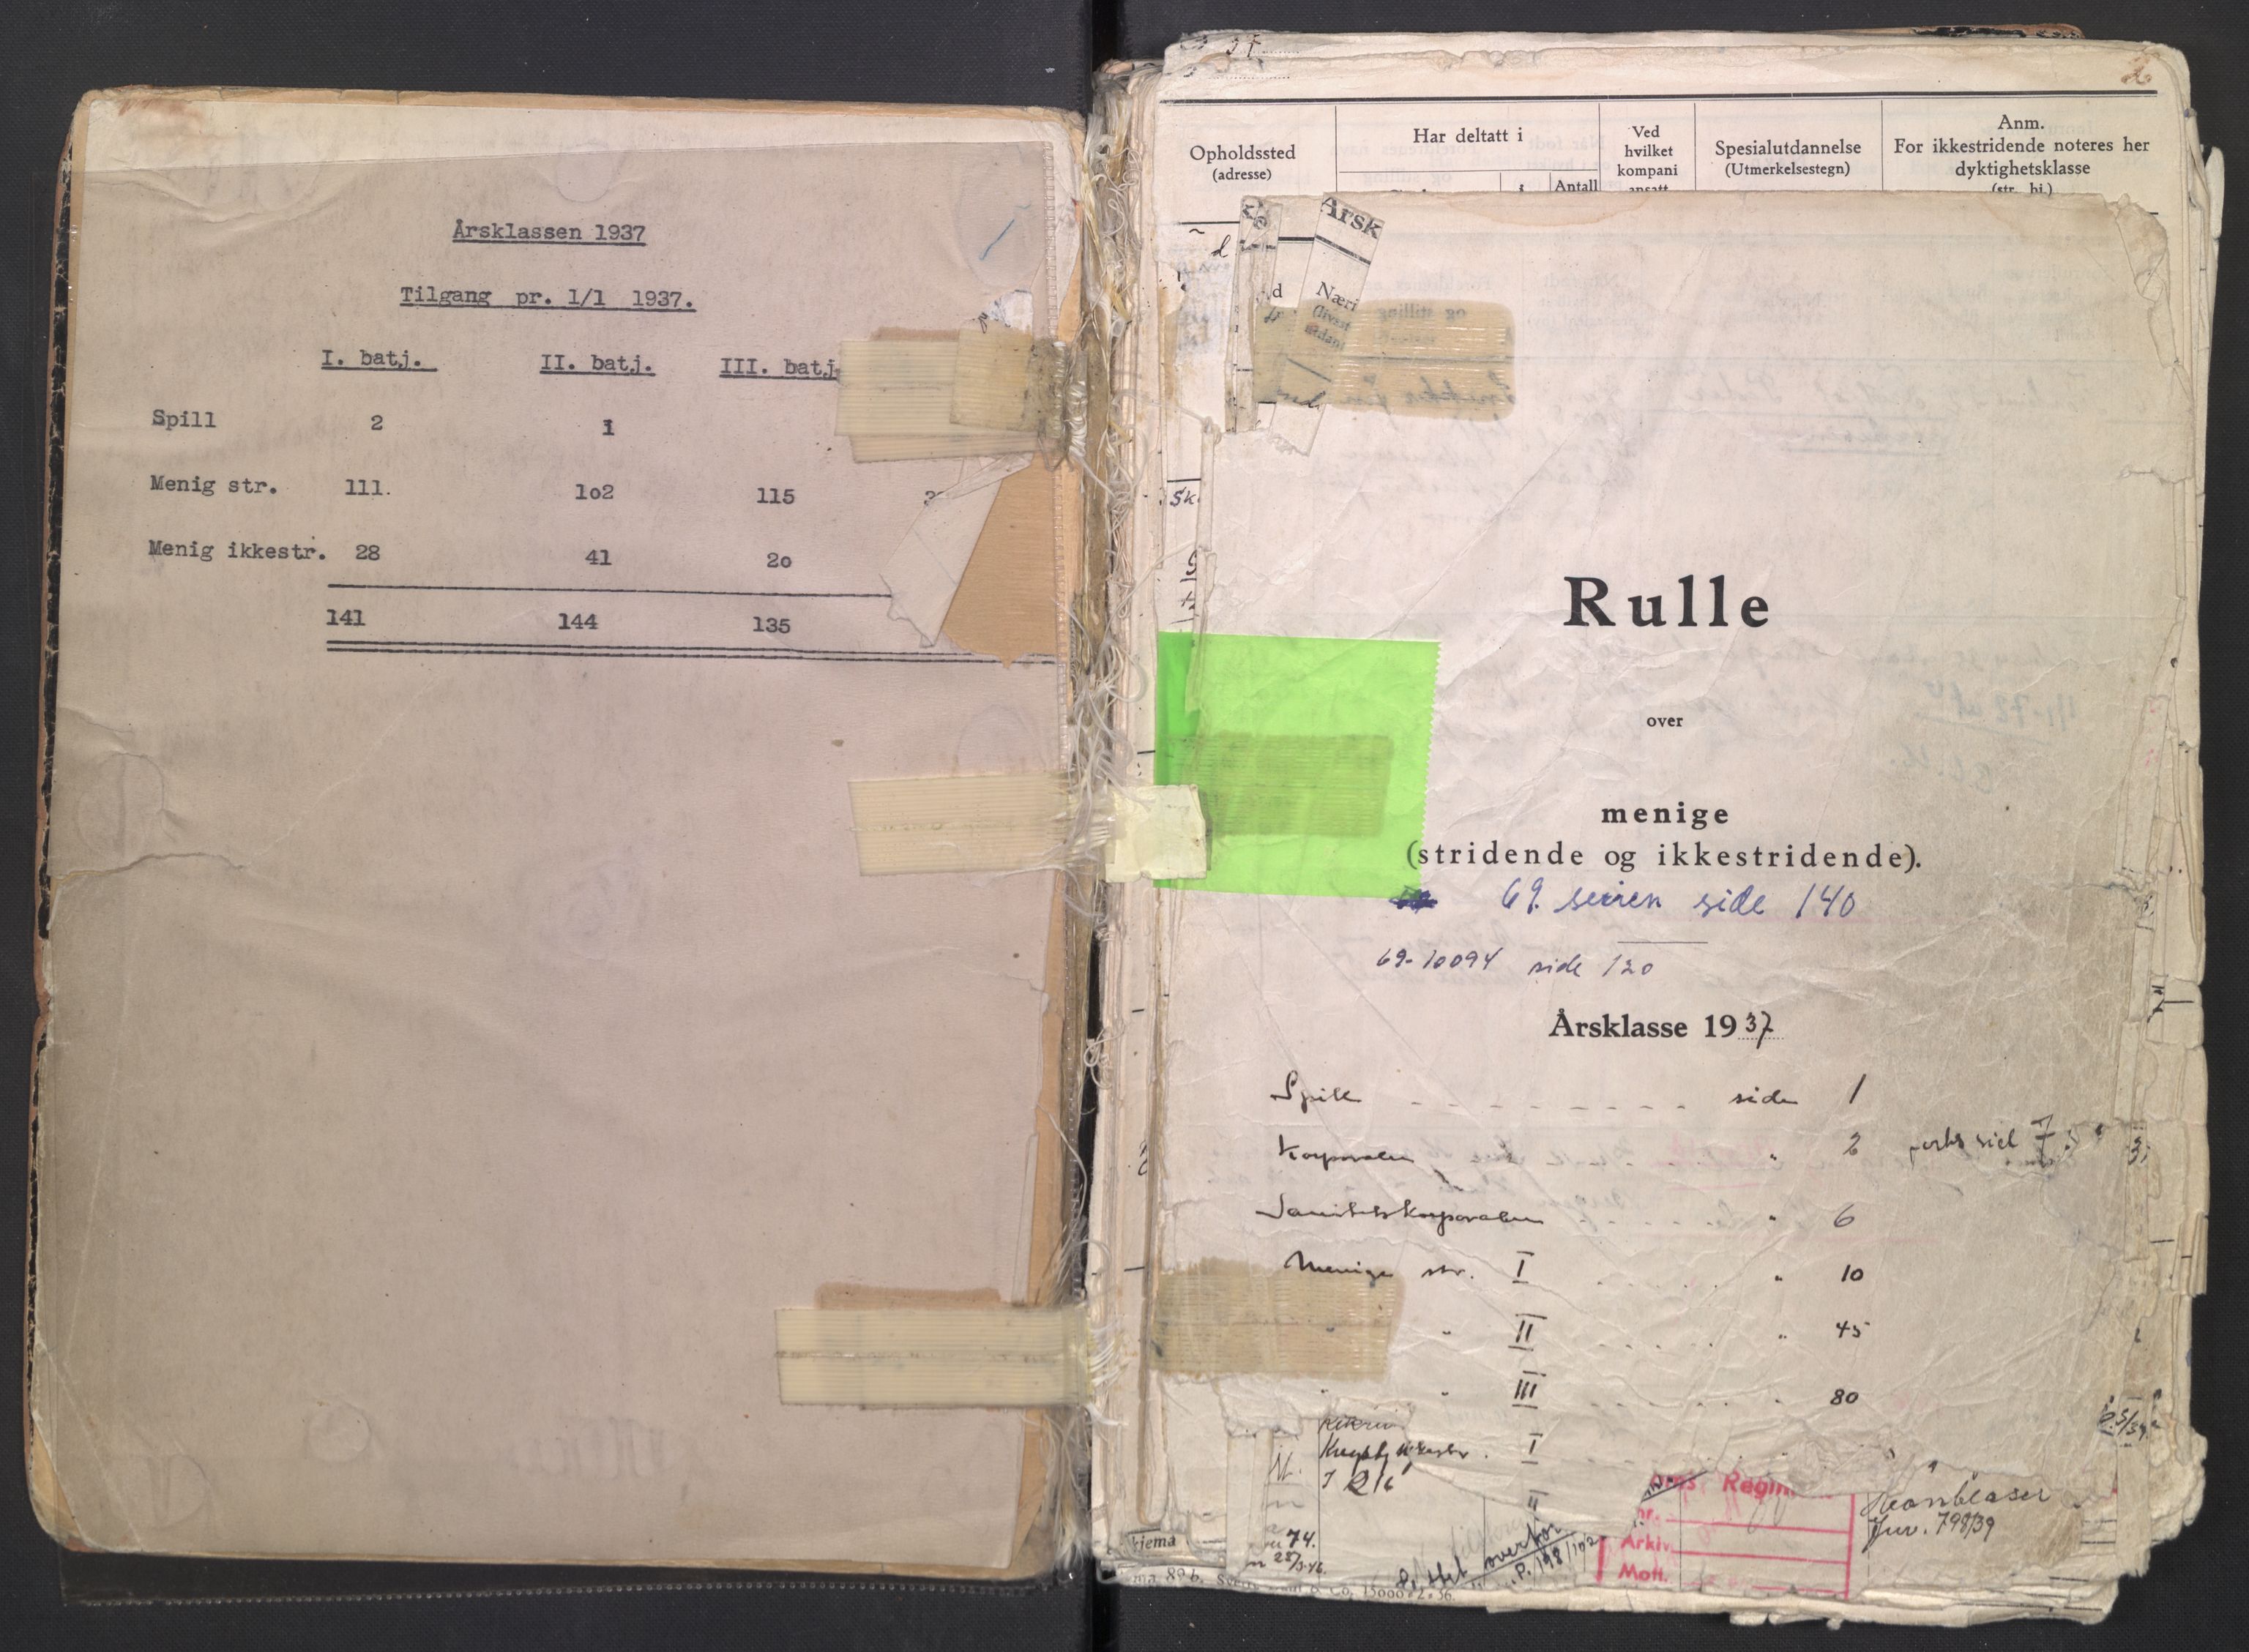 Årsklassen 1937
Tilgang pr. 1/1 1937.
I. batj. II. batj. III. batj.
Spill 2 1
Menig str. 111. 1o2 115
Menig ikkestr. 28 41 2o
141 144 135
Opholdssted
(adresse)
Har deltatt i
Antall
Ved
hvilket
kompani
ansatt
Spesialutdannelse
(Utmerkelsestegn)
Anm.
For ikkestridende noteres her
dyktighetsklasse
(str. bi.)
Årsk
Næri
Rulle
over
menige
(stridende og ikkestridende).
69. serien side 140
69-10094 side 120
Årsklasse 1937
Spill side 1
Korporaler " 2
Sanitetskorporaler " 6
Menige str. I " 10
" II " 45
" " III " 80
I
II
Regim
Arkiv
Mott.
Jnv. 798/39
74.
kjema
overfor
P. 198/102